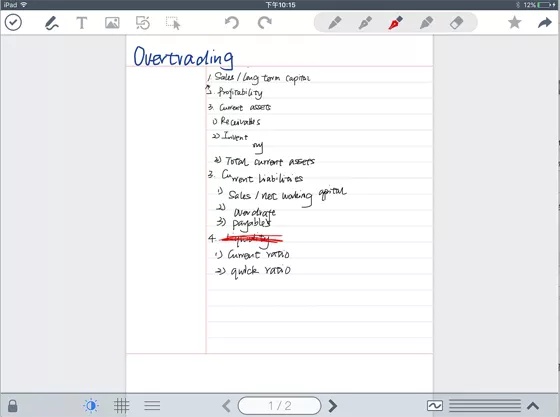 iPad
下午10:15
12%
Overtrading
1. Sales / long term capital
2. Profitability
3. Current assets
1) Receivables
2) Invent
ory
3) Total current assets
3. Current liabilities
1) Sales / net working capital
2) overdrate
3) payables
4. liquidity
1) Current ratio
2) quick ratio
1 / 2